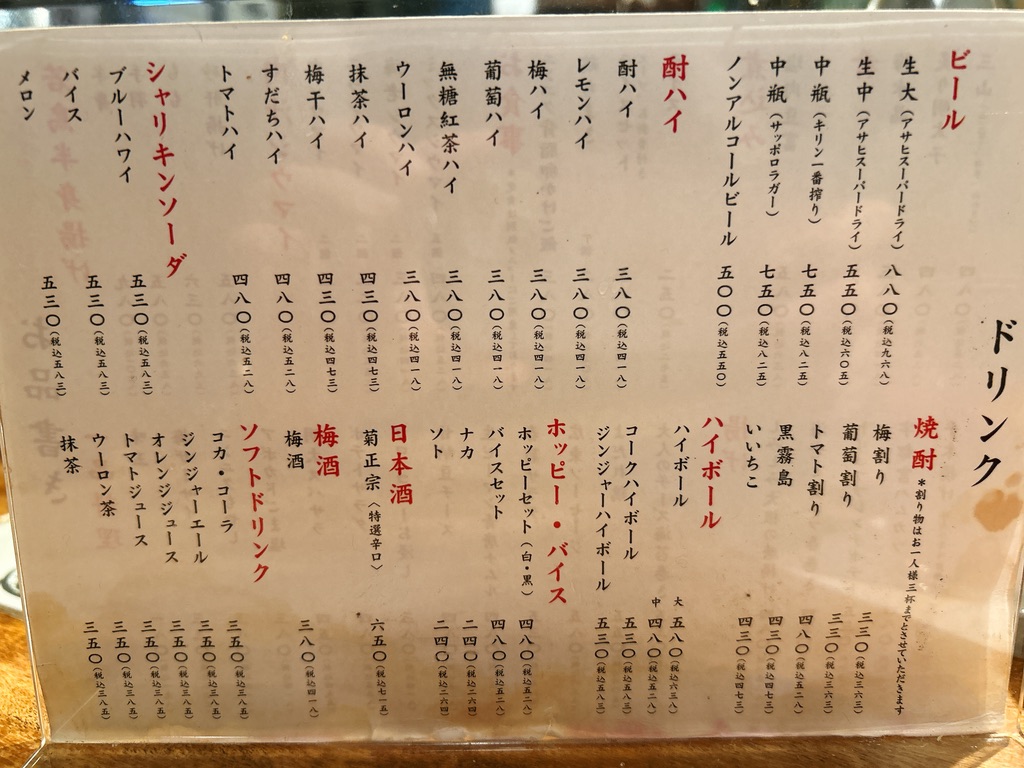 ドリンク
ビール
生大(アサヒスーパードライ) 八八〇(税込九六八)
生中(アサヒスーパードライ) 五五〇(税込六〇五)
中瓶(キリン一番搾り) 七五〇(税込八二五)
中瓶(サッポロラガー) 七五〇(税込八二五)
ノンアルコールビール 五〇〇(税込五五〇)
酎ハイ
酎ハイ 三八〇(税込四一八)
レモンハイ 三八〇(税込四一八)
梅ハイ 三八〇(税込四一八)
葡萄ハイ 三八〇(税込四一八)
無糖紅茶ハイ 三八〇(税込四一八)
ウーロンハイ 三八〇(税込四一八)
抹茶ハイ 四三〇(税込四七三)
梅干ハイ 四三〇(税込四七三)
すだちハイ 四八〇(税込五二八)
トマトハイ 四八〇(税込五二八)
シャリキンソーダ
ブルーハワイ 五三〇(税込五八三)
バイス 五三〇(税込五八三)
メロン 五三〇(税込五八三)
焼酎 *割り物はお一人様三杯までとさせていただきます
梅割り 三三〇(税込三六三)
葡萄割り 三三〇(税込三六三)
トマト割り 四八〇(税込五二八)
黒霧島 四三〇(税込四七三)
いいちこ 四三〇(税込四七三)
ハイボール
ハイボール 大 五八〇(税込六三八)
中 四八〇(税込五二八)
コークハイボール 五三〇(税込五八三)
ジンジャーハイボール 五三〇(税込五八三)
ホッピー・バイス
ホッピーセット(白・黒) 四八〇(税込五二八)
バイスセット 四八〇(税込五二八)
ナカ 二四〇(税込二六四)
ソト 二四〇(税込二六四)
日本酒
菊正宗(特選辛口) 六五〇(税込七一五)
梅酒
梅酒 三八〇(税込四一八)
ソフトドリンク
コカ・コーラ 三五〇(税込三八五)
ジンジャーエール 三五〇(税込三八五)
オレンジジュース 三五〇(税込三八五)
トマトジュース 三五〇(税込三八五)
ウーロン茶 三五〇(税込三八五)
抹茶 三五〇(税込三八五)